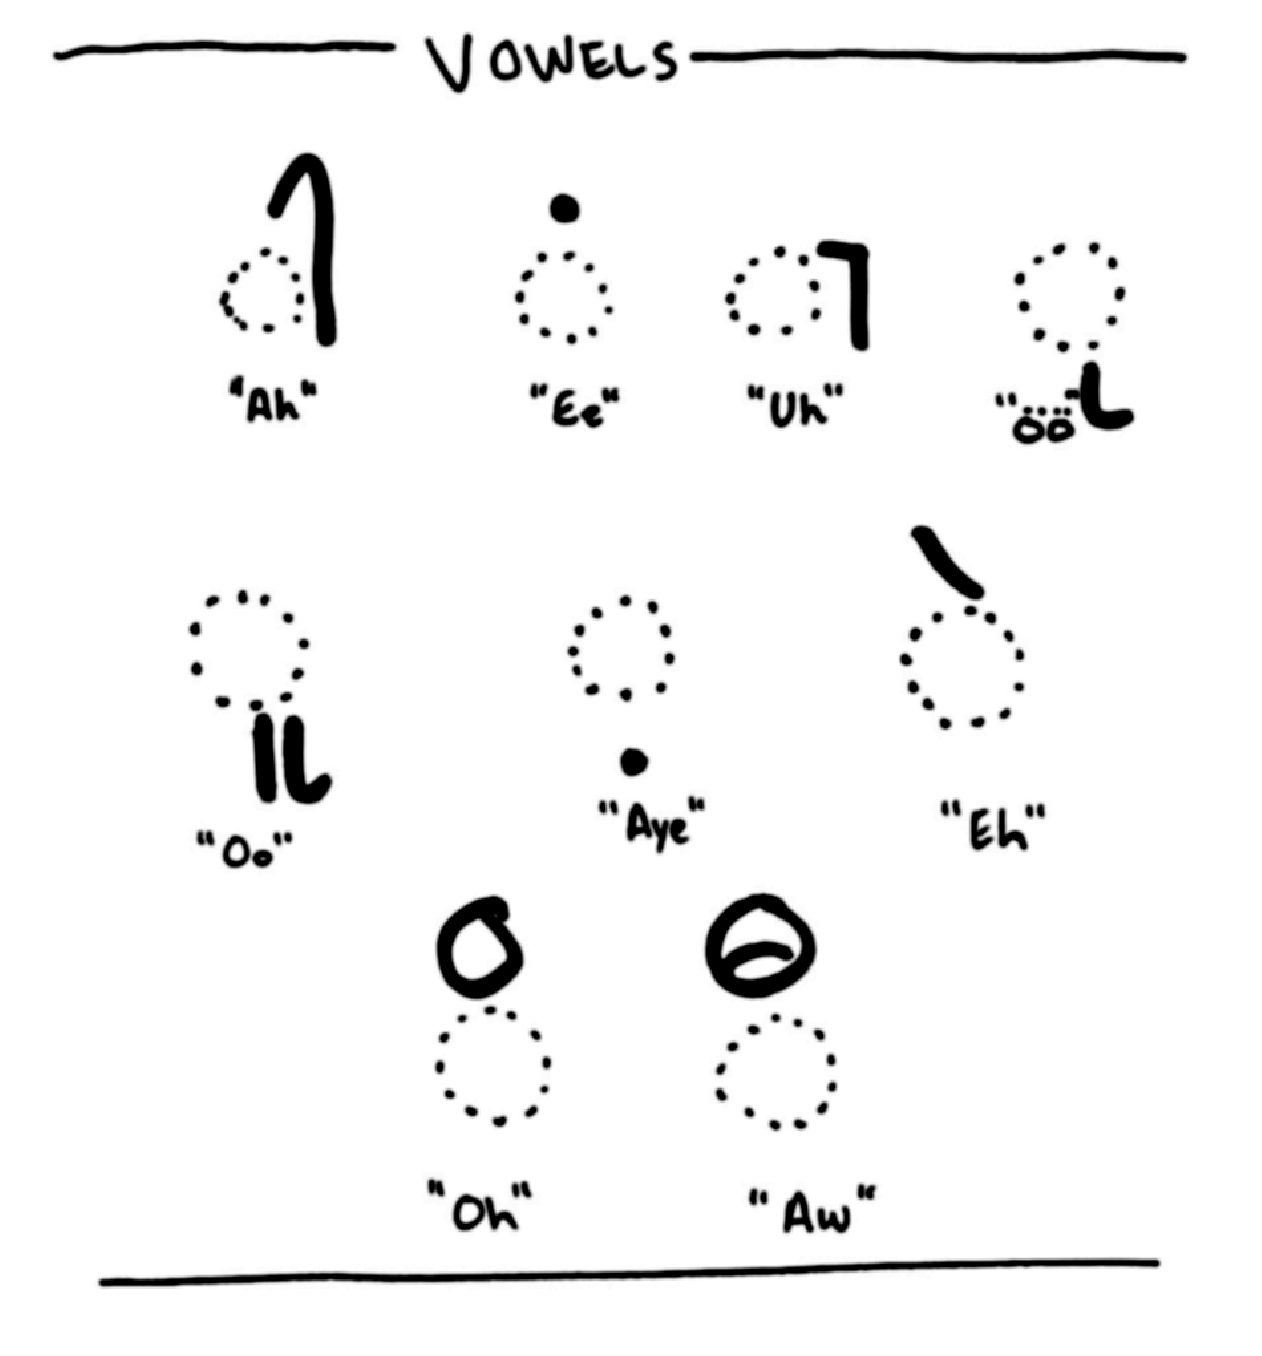 VOWELS
"Ah" "Ee" "Uh" "öö"
"Oo" "Aye" "Eh"
"Oh" "Aw"